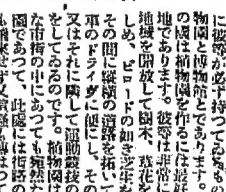 に彼等が必ず持つてゐるもの
物園と博物館とであります。
の國は植物園を作るには最
地であります。彼等は非常に
地域を開放して樹木、草花
しめ、ビロードの如き芝生を
その間に縱横の道路を拓いて
車のドライヴに便にし、その
又はそれに隣して運動競技の
をしてゐるのです。植物園は
な市街の中にあつても宛然た
園であつて、此處には街路の